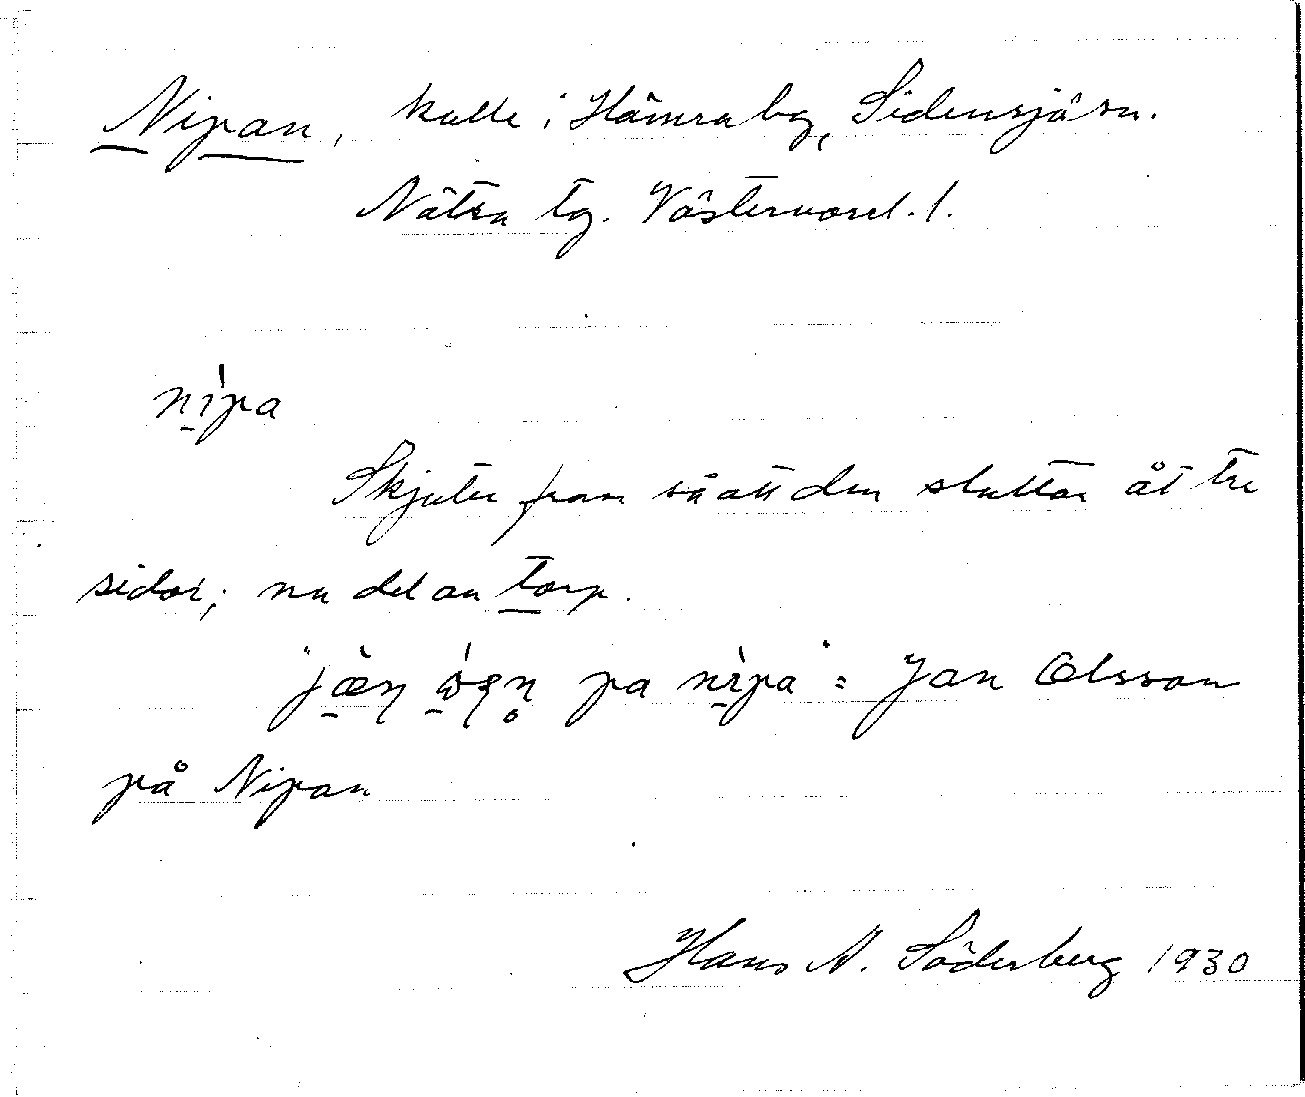 Nipan, kulle i Hämra by, Sidensjö sn.
Nätra tg. Västernorrl. l.
nipa
Skjuter fram så att den sluttar åt tre
sidor; nu del av torp.
"jæn pa nipa" = Jan Olsson
på Nipan
Hans N. Söderberg 1930